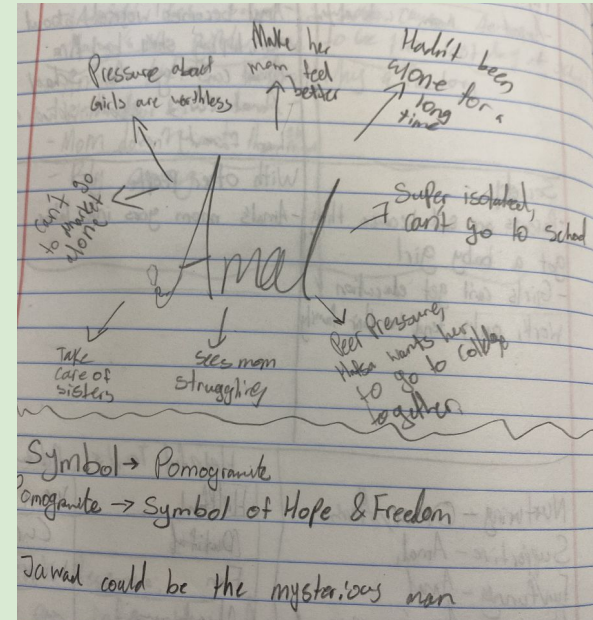 Pressure about
Girls are worthless
Make her
mom feel
better
Hadn't been
alone for a
long
time
Can't go
to market
alone
Amal
Super isolated,
can't go to school
Take
care of
sisters
sees mom
struggling
Peer Pressure,
Hafsa wants her
to go to college
together
Symbol → Pomogranite
Pomogranite → Symbol of Hope & Freedom
Jawad could be the mysterious man